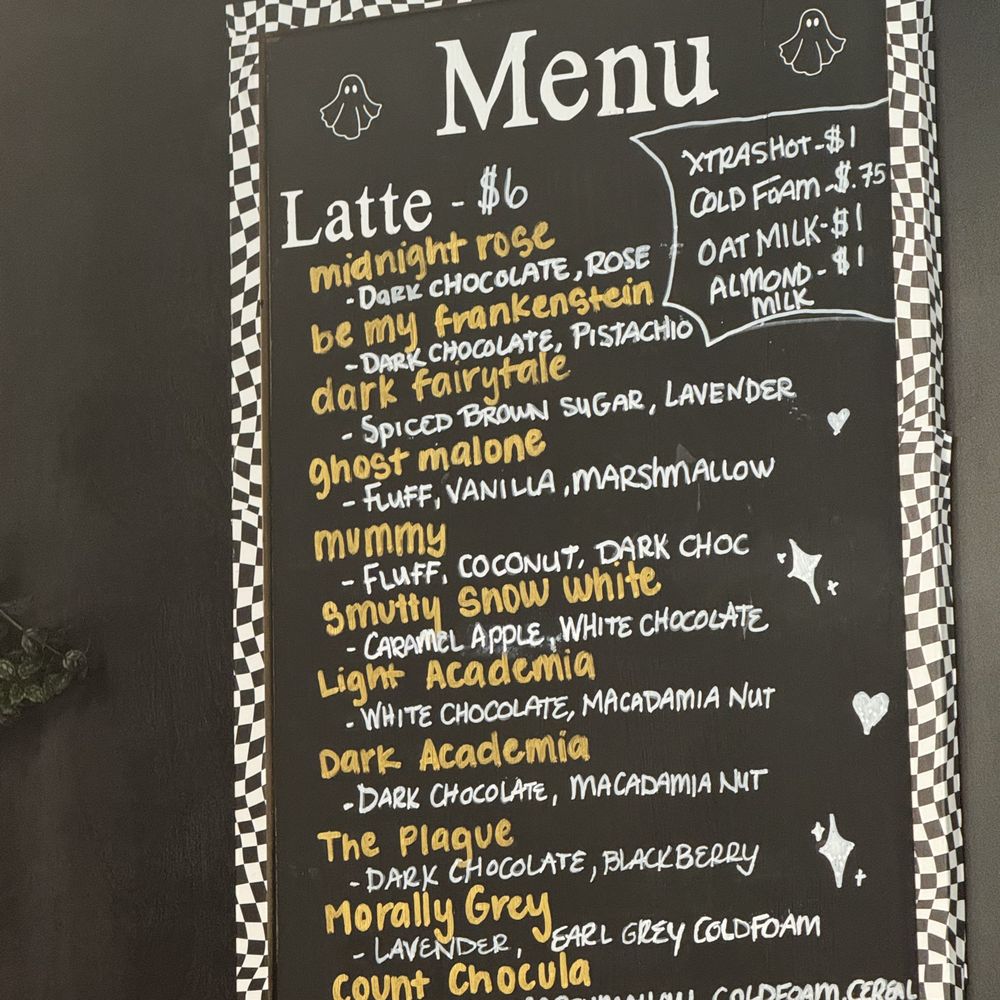 Menu
XTRA SHOT - $1
COLD FOAM - $.75
OAT MILK - $1
ALMOND - $1
MILK
Latte - $6
midnight rose
- DARK CHOCOLATE, ROSE
be my frankenstein
- DARK CHOCOLATE, PISTACHIO
dark fairytale
- SPICED BROWN SUGAR, LAVENDER
ghost malone
- FLUFF, VANILLA, MARSHMALLOW
mummy
- FLUFF, COCONUT, DARK CHOC
Smutty Snow White
- CARAMEL APPLE, WHITE CHOCOLATE
Light Academia
- WHITE CHOCOLATE, MACADAMIA NUT
Dark Academia
- DARK CHOCOLATE, MACADAMIA NUT
The Plague
- DARK CHOCOLATE, BLACKBERRY
Morally Grey
- LAVENDER, EARL GREY COLDFOAM
Count Chocula
COLDFOAM, CEREAL